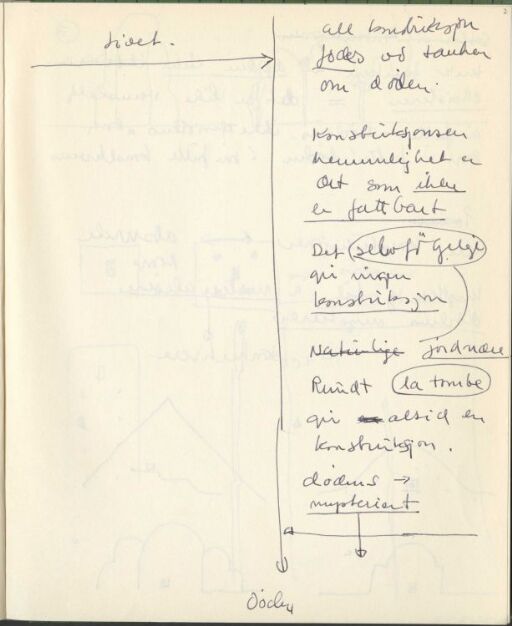 livet.
all konstruksjon
fødes ved tanken
om døden.
Konstruksjonsen
hemmelighet er
Det som ikke
er fattbart
Det selvfølgelige
gir ingen
konstruksjon
Naturlige jordnære
Rundt la tombe
gir altid en
konstruksjon.
dødens →
mysterium
Døden